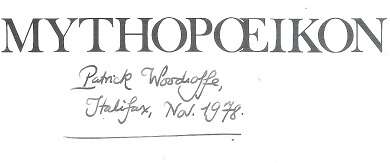 MYTHOPŒIKON
Patrick Woodroffe,
Halifax, Nov. 1978.